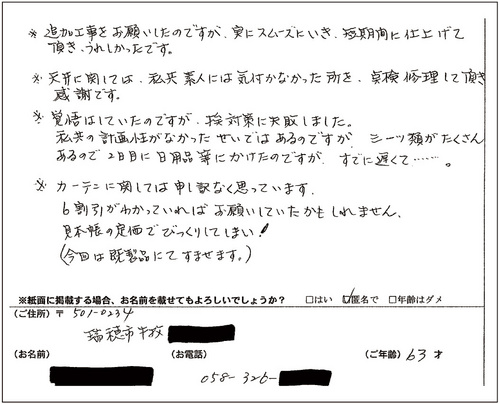 ※ 追加工事をお願いしたのですが、実にスムーズにいき、短期間に仕上げて
頂き、うれしかったです。
※ 天井に関しては、私共素人には気付かなかった所を、点検修理して頂き
感謝です。
※ 覚悟はしていたのですが、埃対策に失敗しました。
私共の計画性がなかったせいではあるのですが、シーツ類がたくさん
あるので2日目に日用品等にかけたのですが、すでに遅くて……。
※ カーテンに関しては申し訳なく思っています。
6割引がわかっていればお願いしていたかもしれません。
見本帳の定価でびっくりしてしまい!
(今回は既製品にてすませます。)
※紙面に掲載する場合、お名前を載せてもよろしいでしょうか? □はい □匿名で □年齢はダメ
(ご住所) 〒 501-0234
瑞穂市牛牧
(お名前) (お電話) (ご年齢) 63才
058-326-